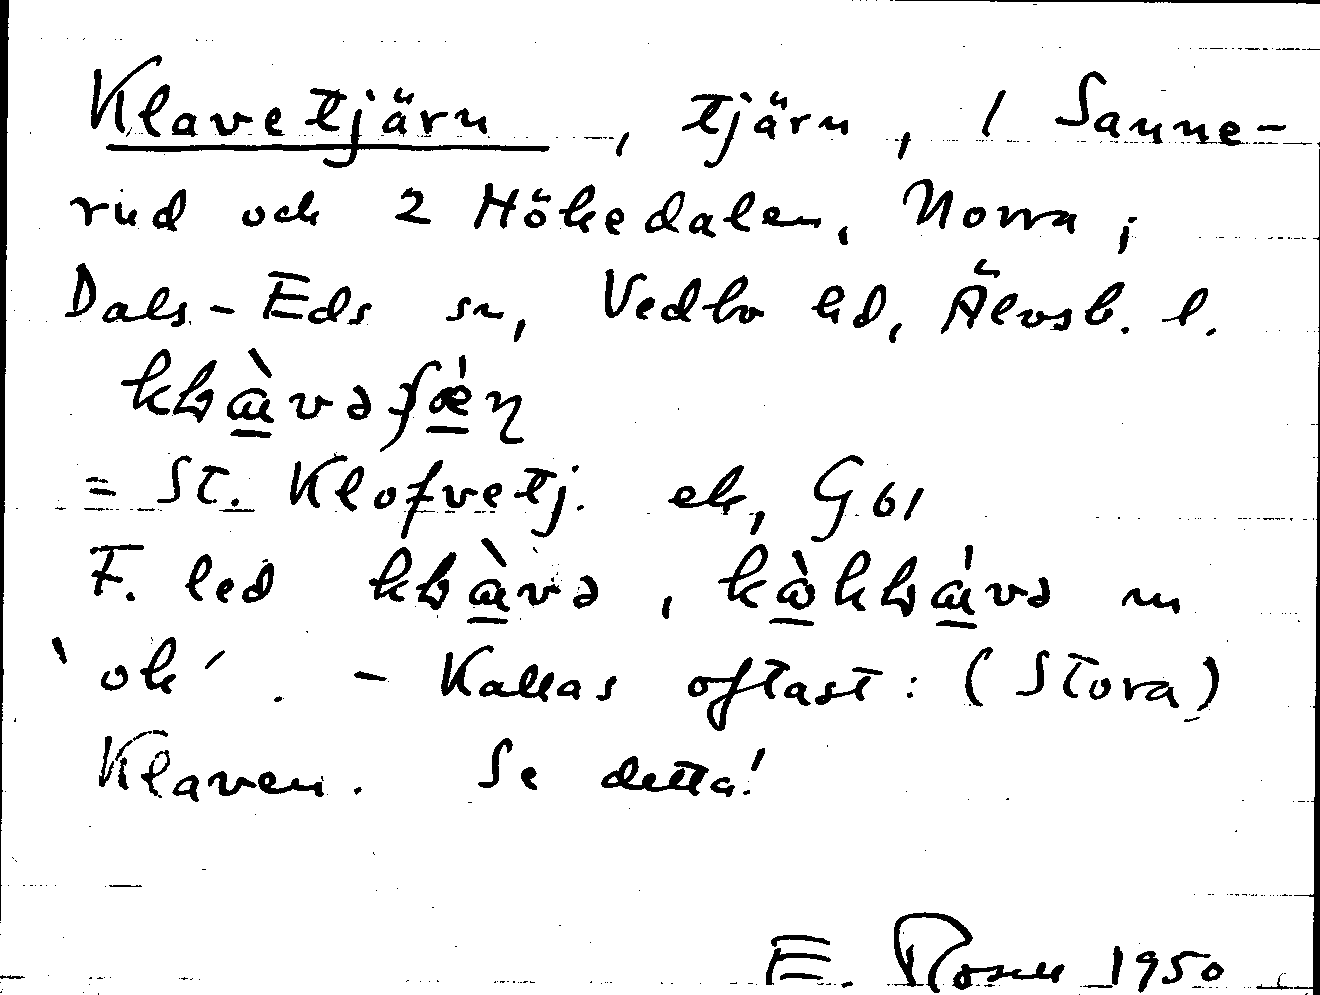 Klavetjärn, tjärn, 1 Sanne-
rud och 2 Hökedalen, Norra i
Dals-Eds sn, Vedbo hd, Älvsb. l.
= St. Klofvetj. ek, G 61
F. led m
`ok´. – Kallas oftast: (Stora)
Klaven. Se detta!
E. Rosell 1950